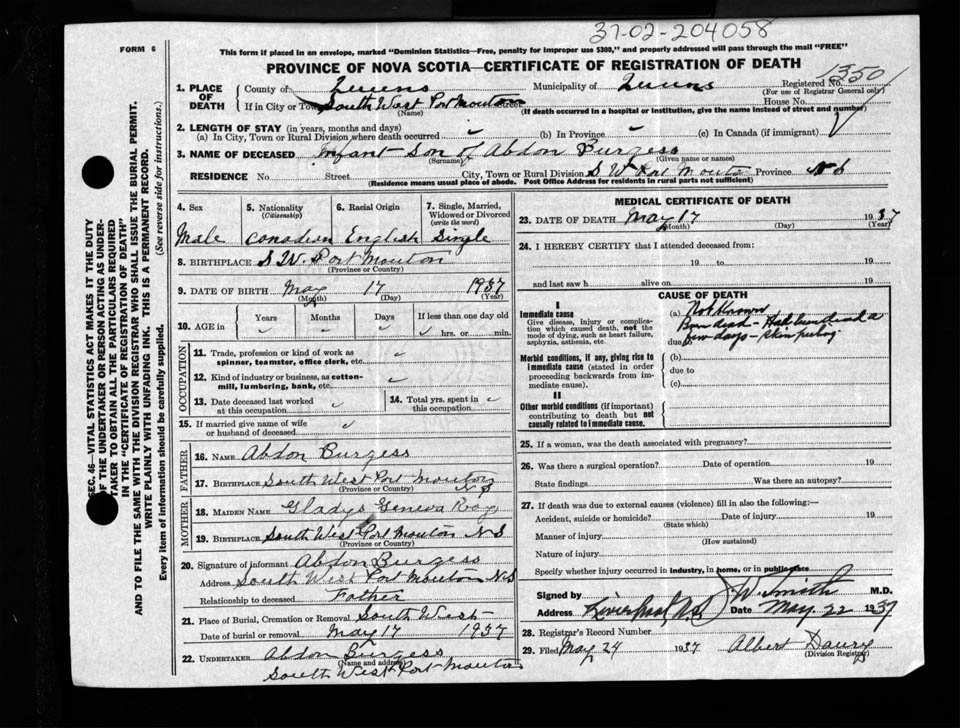 37-02-204058
FORM 6
This form if placed in an envelope, marked "Dominion Statistics—Free, penalty for improper use $300," and properly addressed will pass through the mail "FREE"
PROVINCE OF NOVA SCOTIA—CERTIFICATE OF REGISTRATION OF DEATH
1. PLACE OF DEATH County of Queens Municipality of Queens Registered No. 1350
(For use of Registrar General only)
If in City or Town South West Port Mouton House No.
(Name) (If death occurred in a hospital or institution, give the name instead of street and number)
2. LENGTH OF STAY (in years, months and days)
(a) In City, Town or Rural Division where death occurred (b) In Province (c) In Canada (if immigrant)
3. NAME OF DECEASED Infant Son of Abdon Burgess
(Surname) (Given name or names)
RESIDENCE No. Street City, Town or Rural Division S W Port Mouton Province N S
(Residence means usual place of abode. Post Office Address for residents in rural parts not sufficient)
4. Sex 5. Nationality (Citizenship) 6. Racial Origin 7. Single, Married, Widowed or Divorced (write the word)
Male Canadian English Single
8. BIRTHPLACE S W Port Mouton
(Province or Country)
9. DATE OF BIRTH May 17 1937
(Month) (Day) (Year)
10. AGE in Years Months Days If less than one day
hrs. or min.
OCCUPATION
11. Trade, profession or kind of work as spinner, teamster, office clerk, etc.
12. Kind of industry or business, as cotton-mill, lumbering, bank, etc.
13. Date deceased last worked at this occupation
14. Total yrs. spent in this occupation
15. If married give name of wife or husband of deceased
FATHER
16. NAME Abdon Burgess
17. BIRTHPLACE South West Port Mouton N S
(Province or Country)
MOTHER
18. MAIDEN NAME Gladys Geneva Roy
19. BIRTHPLACE South West Port Mouton N S
(Province or Country)
20. Signature of informant Abdon Burgess
Address South West Port Mouton N S
Relationship to deceased Father
21. Place of Burial, Cremation or Removal South West
Date of burial or removal May 17 1937
22. UNDERTAKER Abdon Burgess
(Name and address)
South West Port Mouton
MEDICAL CERTIFICATE OF DEATH
23. DATE OF DEATH May 17 1937
(Month) (Day) (Year)
24. I HEREBY CERTIFY that I attended deceased from:
19 to 19
and last saw h alive on 19
CAUSE OF DEATH
I
Immediate cause
Give disease, injury or complication which caused death, not the mode of dying, such as heart failure, asphyxia, asthenia, etc.
(a) Not Known
Born dead - Had been dead a
due to few days - skin peeling
Morbid conditions, if any, giving rise to immediate cause (stated in order proceeding backwards from immediate cause).
(b)
due to
(c)
II
Other morbid conditions (if important) contributing to death but not causally related to immediate cause.
25. If a woman, was the death associated with pregnancy?
26. Was there a surgical operation? Date of operation 19
State findings Was there an autopsy?
27. If death was due to external causes (violence) fill in also the following:—
Accident, suicide or homicide? Date of injury 19
(State which)
Manner of injury
(How sustained)
Nature of injury
Specify whether injury occurred in industry, in home, or in public place
Signed by J W. Smith M.D.
Address Liverpool, N.S. Date May 22 1937
28. Registrar's Record Number
29. Filed May 24 1937 Albert Daury
(Division Registrar)
SEC. 46—VITAL STATISTICS ACT MAKES IT THE DUTY
OF THE UNDERTAKER OR PERSON ACTING AS UNDER-
TAKER TO OBTAIN ALL THE PARTICULARS REQUIRED
IN THE "CERTIFICATE OF REGISTRATION OF DEATH"
AND TO FILE THE SAME WITH THE DIVISION REGISTRAR WHO SHALL ISSUE THE BURIAL PERMIT.
WRITE PLAINLY WITH UNFADING INK. THIS IS A PERMANENT RECORD.
Every item of information should be carefully supplied. (See reverse side for instructions.)